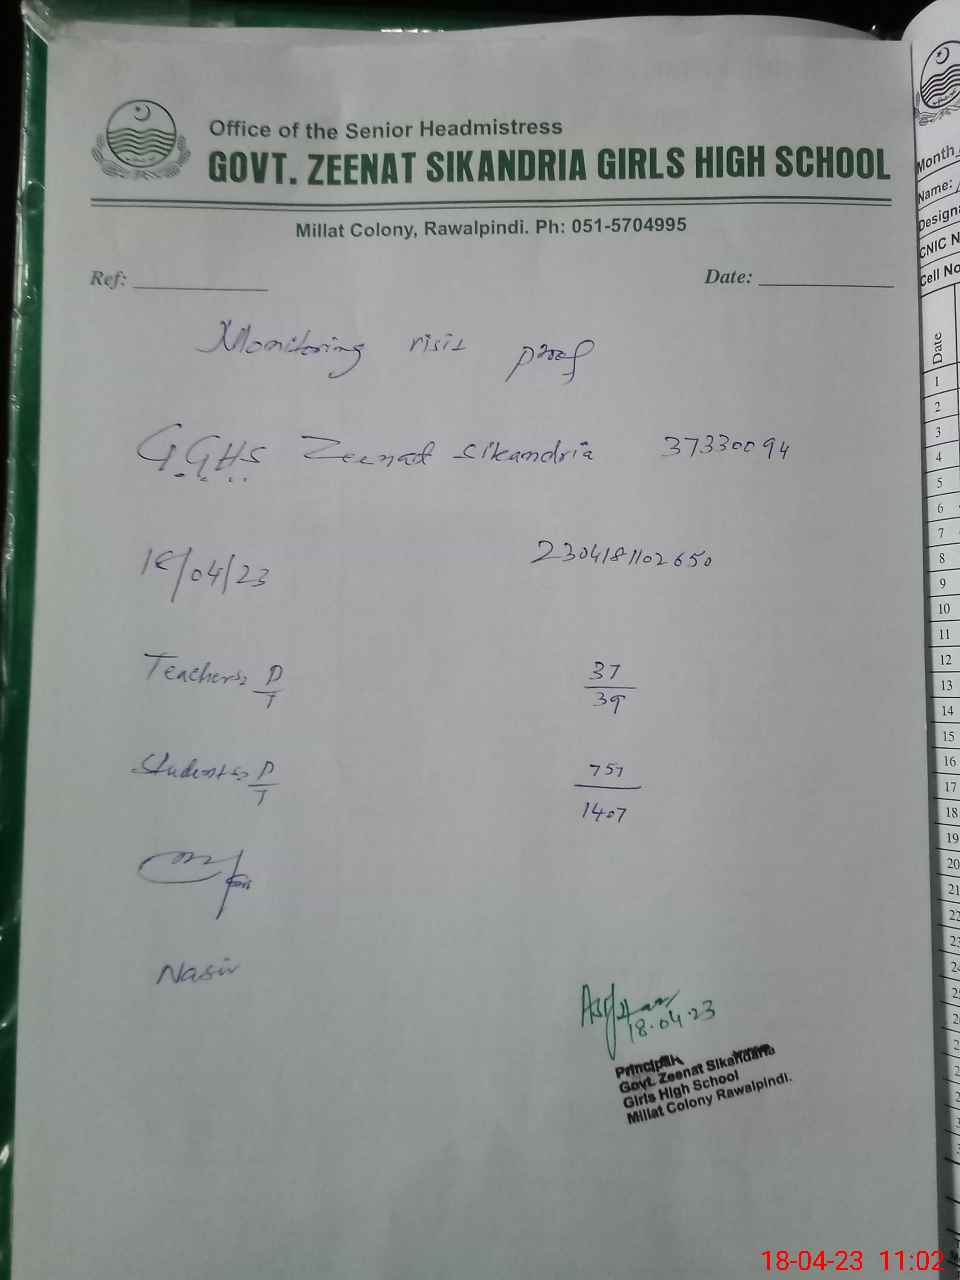 Office of the Senior Headmistress
GOVT. ZEENAT SIKANDRIA GIRLS HIGH SCHOOL
Millat Colony, Rawalpindi. Ph: 051-5704995
Ref: Date:
Monitoring visit proof
G.G.H.S Zeenat Sikandria 37330094
18/04/23 2304181102650
Teachers: P/T 37/39
Students: P/T 757/1407
Nasir
18.04.23
Principal
Govt. Zeenat Sikandaria
Girls High School
Millat Colony Rawalpindi.
Month
Name:
CNIC N
Cell No
Date
1
2
3
4
5
6
7
8
9
10
11
12
13
14
15
16
17
18
19
20
21
22
18-04-23 11:02